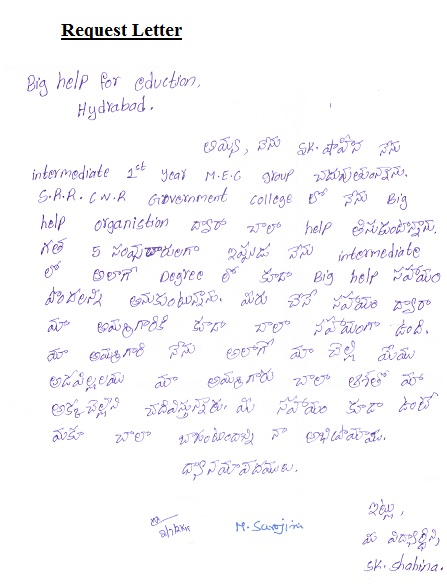 Request Letter
Big help for eduction,
Hydrabad.
అమ్మ, నేను SK. షాహీన నేను
intermediate 1st year M.E.C group చదువుతున్నాను.
S.R.R. C.V.R Government college లో నేను Big
help organistion ద్వారా చాలా help తీసుకుంటున్నాను.
గత 5 సంవత్సరాలుగా ఇప్పుడు నేను intermediate
లో అలాగే Degree లో కూడా Big help సహాయం
పొందాలని అనుకుంటున్నాను. మీరు చేసే సహాయం ద్వారా
మా అమ్మగారికి కూడా చాలా సహాయంగా ఉంది.
మా అమ్మగారి నేను అలాగే మా చెల్లి మేము
ఆడపిల్లలము మా అమ్మగారు చాలా ఆశతో మా
అక్క చెల్లెలని చదివిస్తున్నారు. మీ సహాయం కూడా ఉంటే
మాకు చాలా బాగుంటుందని నా అభిప్రాయము.
ధన్యవాదములు.
M. Sarojini
ఇట్లు,
మీ విద్యార్థిని,
SK. Shahina.